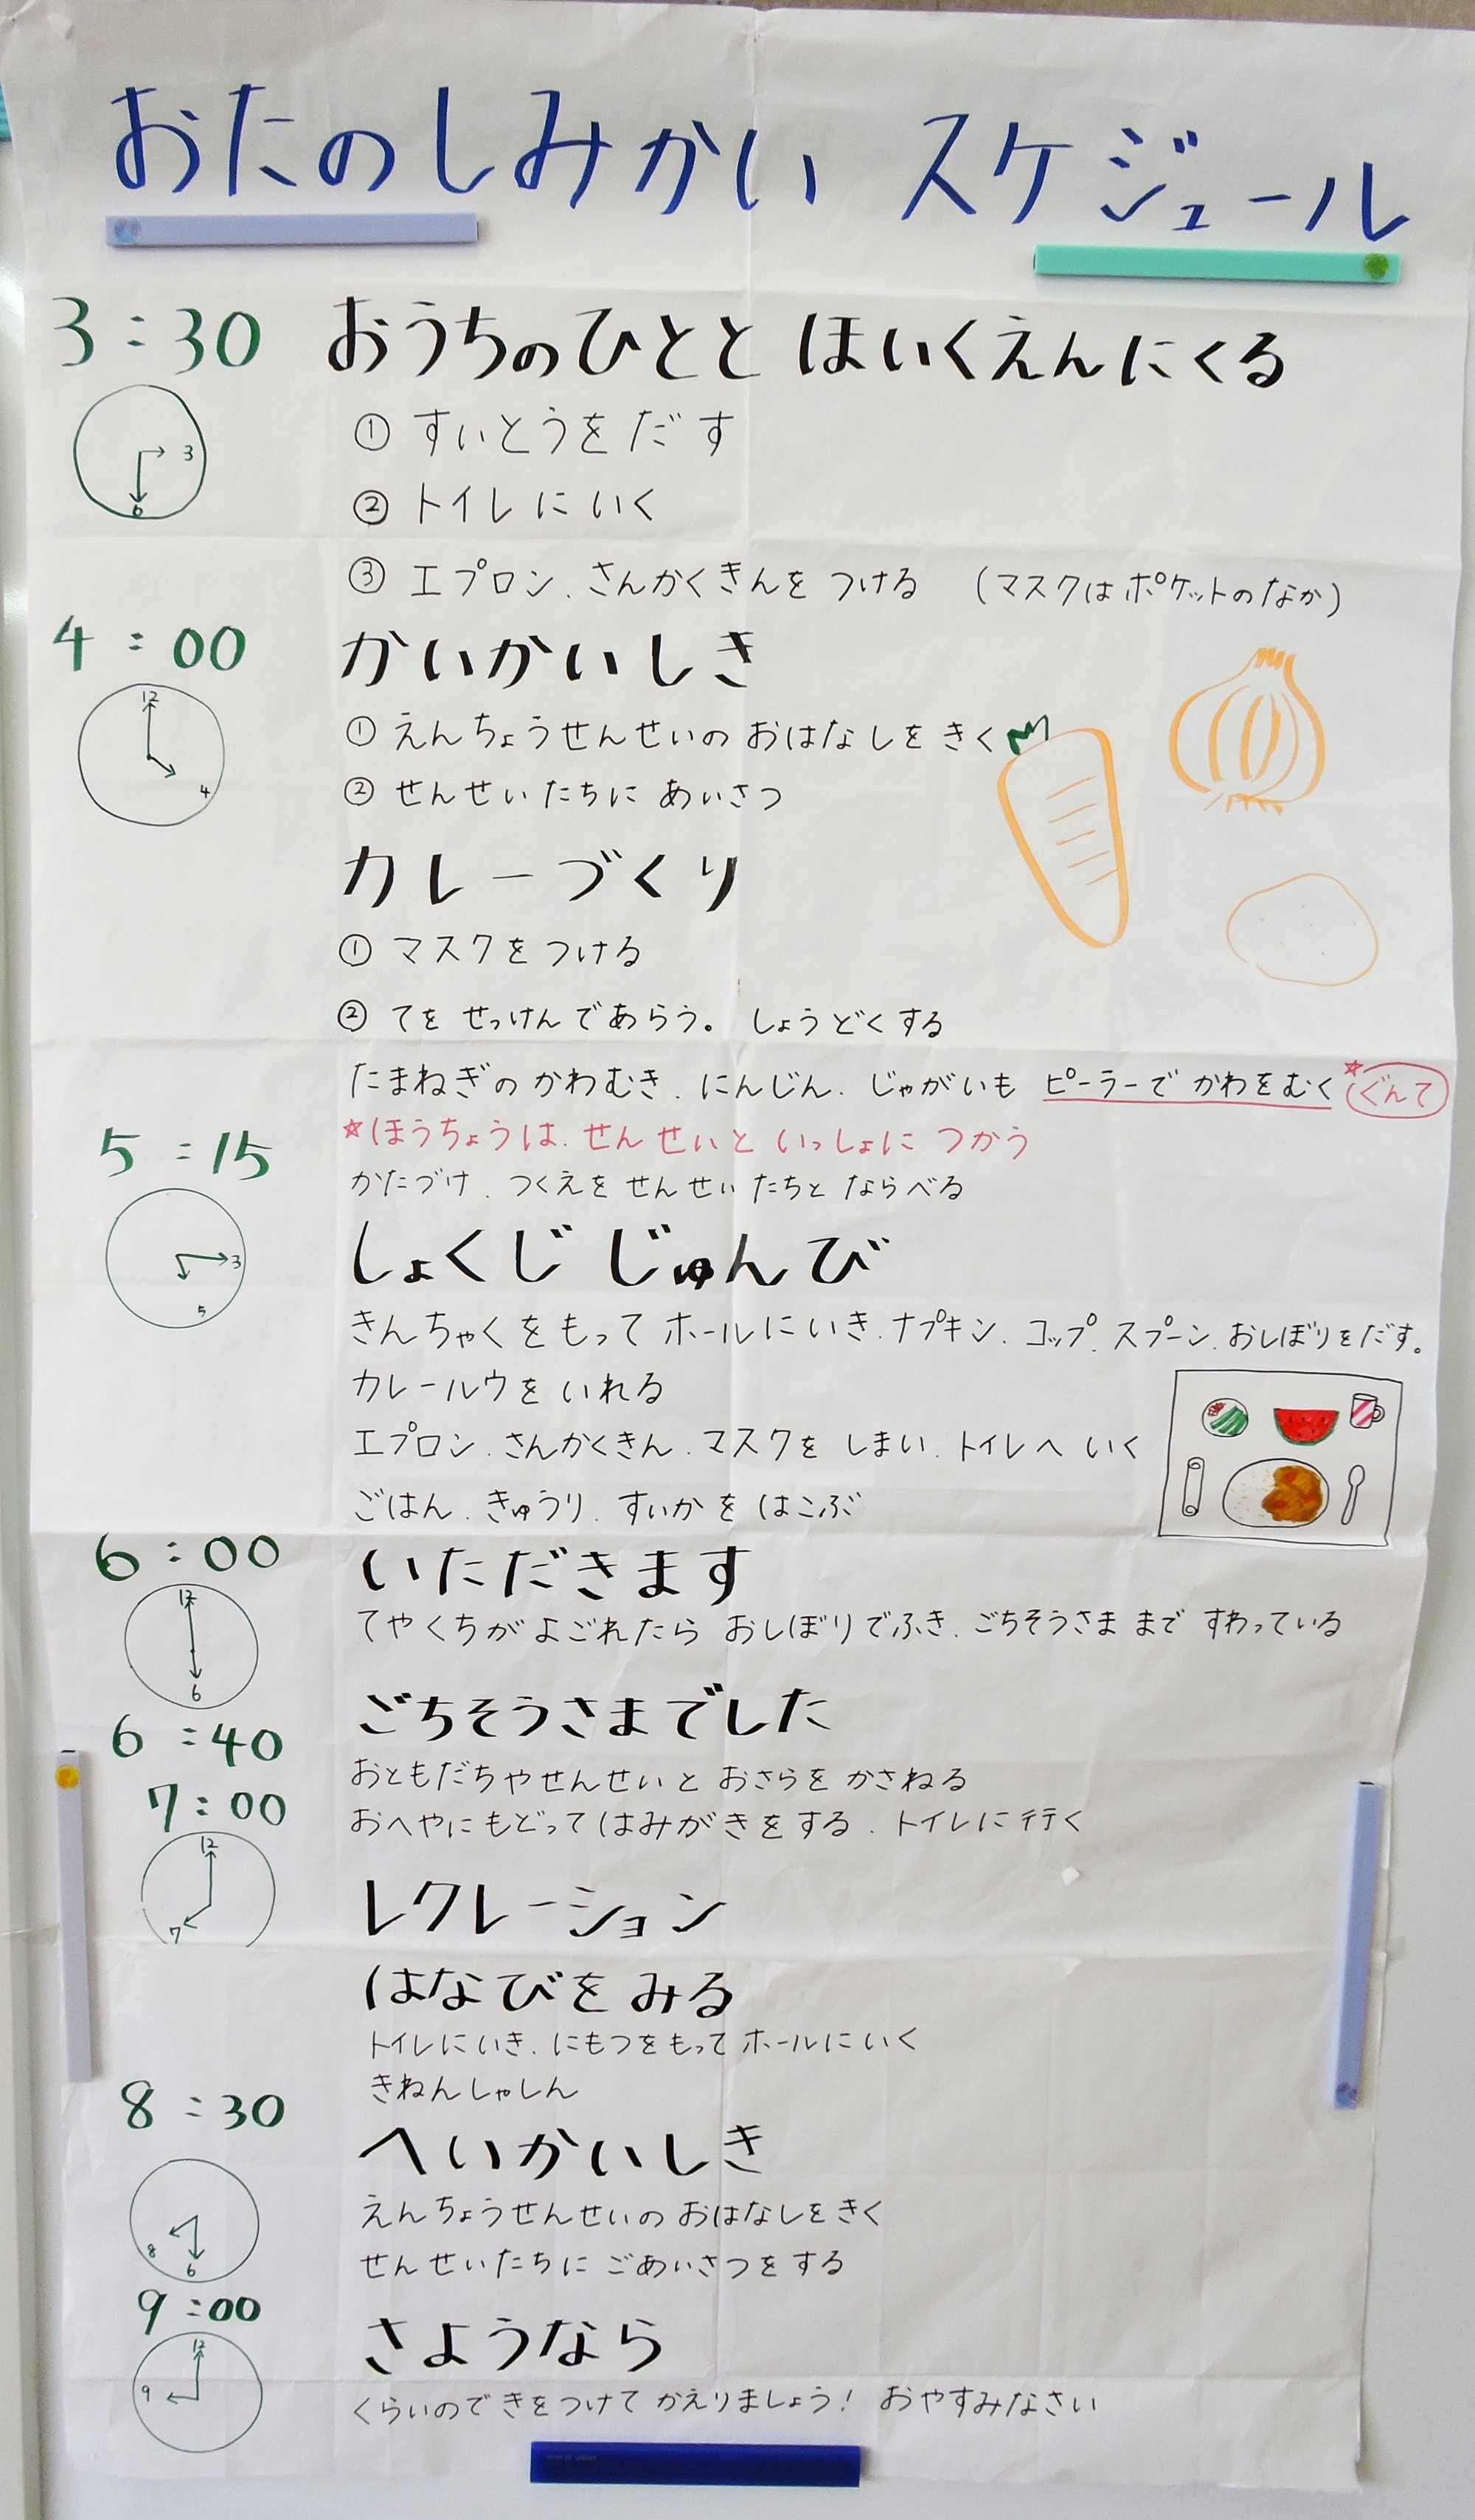 おたのしみかい スケジュール
3:30 おうちのひとと ほいくえんにくる
3
6
① すいとうを だす
② トイレに いく
③ エプロン、さんかくきんを つける (マスクは ポケットのなか)
4:00 かいかいしき
12
4
① えんちょうせんせいの おはなしを きく
② せんせいたちに あいさつ
カレーづくり
① マスクを つける
② てを せっけんであらう。 しょうどくする
たまねぎの かわむき、にんじん、じゃがいも ピーラーで かわをむく ☆ぐんて
☆ほうちょうは、せんせいと いっしょに つかう
5:15
3
5
かたづけ、つくえを せんせいたちと ならべる
しょくじ じゅんび
きんちゃくを もって ホールにいき、ナプキン、コップ、スプーン、おしぼりをだす。
カレールウを いれる
エプロン、さんかくきん、マスクを しまい、トイレへ いく
ごはん、きゅうり、すいかを はこぶ
6:00 いただきます
12
6
てやくちが よごれたら おしぼりでふき、ごちそうさま まで すわっている
ごちそうさまでした
6:40
おともだちやせんせいと おさらを かさねる
7:00
12
7
おへやにもどって はみがきをする、トイレに行く
レクレーション
はなびを みる
トイレにいき、にもつをもって ホールにいく
きねんしゃしん
8:30
へいかいしき
8
6
えんちょうせんせいの おはなしを きく
せんせいたちに ごあいさつをする
9:00
さようなら
12
9
くらいので きをつけて かえりましょう! おやすみなさい